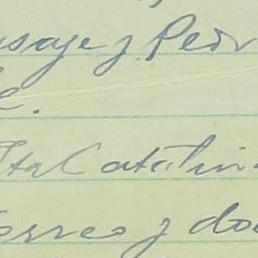 nsaje y Pedr
e.
Sta Catalin
orreo y do